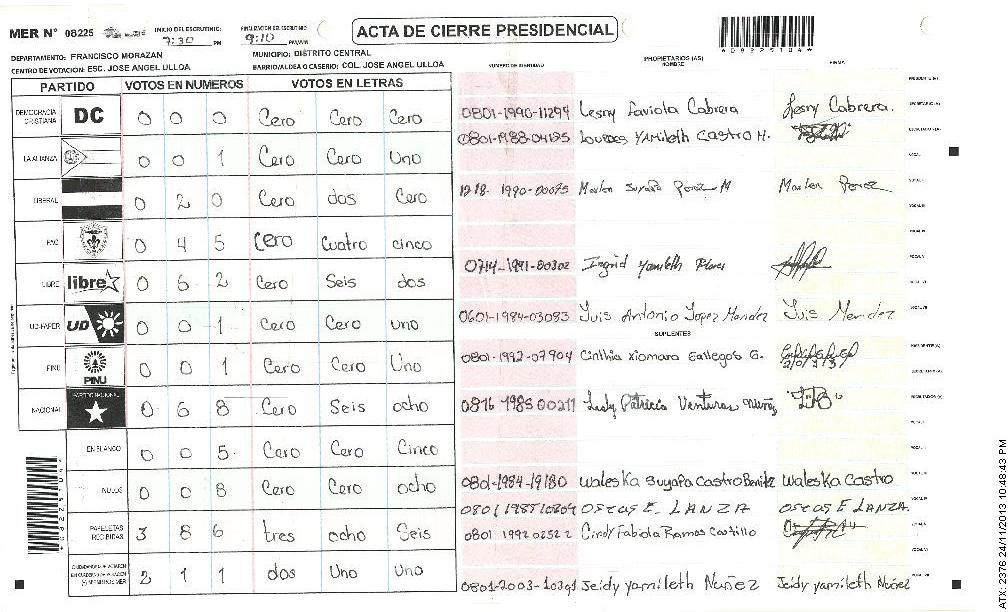 MER N° 08225
INICIO DEL ESCRUTINIO: 7:30 PM
FINALIZACION DEL ESCRUTINIO: 9:10 PM/AM
ACTA DE CIERRE PRESIDENCIAL
DEPARTAMENTO: FRANCISCO MORAZAN
MUNICIPIO: DISTRITO CENTRAL
CENTRO DE VOTACION: ESC. JOSE ANGEL ULLOA
BARRIO/ALDEA O CASERIO: COL. JOSE ANGEL ULLOA
PARTIDO VOTOS EN NUMEROS VOTOS EN LETRAS
DEMOCRACIA CRISTIANA DC 0 0 0 Cero Cero Cero
LA ALIANZA 0 0 1 Cero Cero Uno
LIBERAL 0 2 0 Cero dos Cero
PAC 0 4 5 Cero Cuatro cinco
LIBRE libre 0 6 2 Cero Seis dos
UD-FAPER UD 0 0 1 Cero Cero uno
PINU PINU 0 0 1 Cero Cero Uno
NACIONAL PARTIDO NACIONAL 0 6 8 Cero Seis ocho
EN BLANCO 0 0 5 Cero Cero Cinco
NULOS 0 0 8 Cero Cero ocho
PAPELETAS RECIBIDAS 3 8 6 tres ocho Seis
2 1 1 dos Uno Uno
NUMERO DE IDENTIDAD
PROPIETARIOS (AS)
NOMBRE
FIRMA
0801-1990-11294 Lesny Faviola Cabrera Lesny Cabrera.
0801-1988-04195 Lourdes Yamileth Castro H.
1218-1990-00095 Marlen Suyapa Perez M Marlen Perez
0714-1991-00302 Ingrid Yamileth Flores
0601-1984-03093 Luis Antonio Lopez Mendez Luis Mendez
SUPLENTES
0801-1992-07904 Cinthia Xiomara Gallegos G.
0816 1985 00211 Lesly Patricia Venturas Nuñez
0801-1984-19180 Waleska Suyapa Castro Benitez Waleska Castro
OSCAS E. LANZA OSCAS E LANZA.
0801 1992 02522 Cindy Fabiola Ramos Castillo
0801-2003-10391 Jeidy yamileth Nuñez Jeidy yamileth Nuñez
ATX 2376 24/11/2013 10:48:43 PM